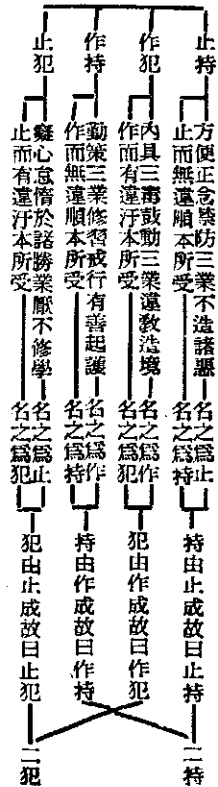 止持
方便正念護防三業不造諸惡
名之爲止
止而無違順本所受
名之爲持
持由止成故曰止持
作犯
內具三毒鼓動三業違教造境
名之爲作
作而有違汙本所受
名之爲犯
犯由作成故曰作犯
作持
勤策三業修習戒行有善起護
名之爲作
作而無違順本所受
名之爲持
持由作成故曰作持
止犯
癡心怠惰於諸勝業厭不修學
名之爲止
止而有違汙本所受
名之爲犯
犯由止成故曰止犯
二持
二犯